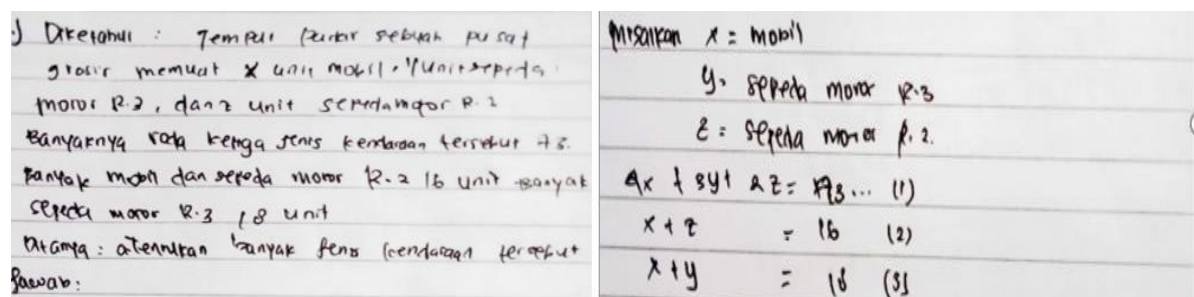 ) Diketahui : Tempat parkir sebuah pusat
grosir memuat x unit mobil, y unit sepeda
motor R.3, dan z unit sepeda motor R.2
Banyaknya roda ketiga jenis kendaraan tersebut 73.
Banyak mobil dan sepeda motor R.2 16 unit Banyak
sepeda motor R.3 18 unit
Ditanya : banyak jenis kendaraan tersebut
Jawab :
Misalkan x = mobil
y = sepeda motor R.3
z = sepeda motor R.2.
4x + 3y + 2z = 73 ... (1)
x + z = 16 (2)
x + y = 18 (3)